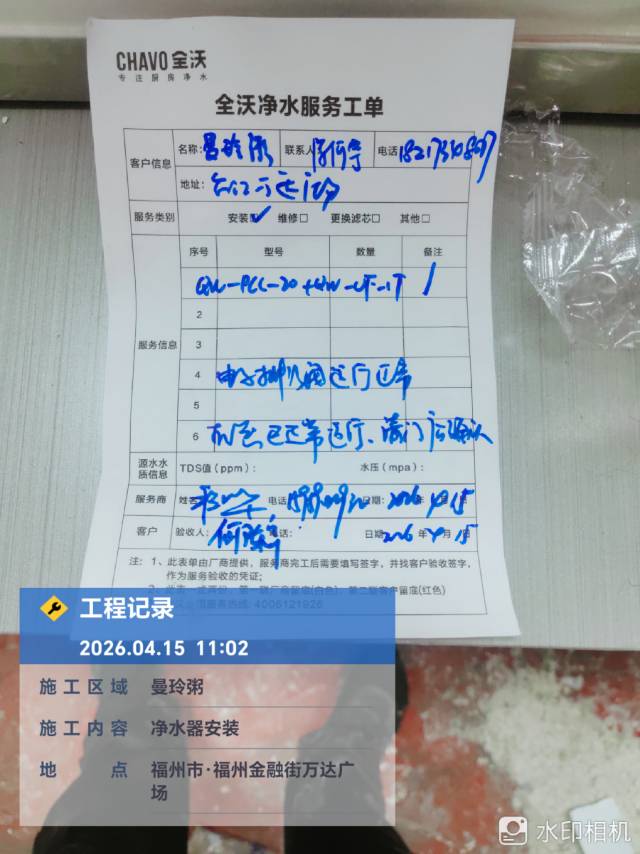 CHAVO 全沃
专注厨房净水
全沃净水服务工单
客户信息
名称: 曼玲粥 联系人: 电话
地址:
服务类别 安装☑ 维修□ 更换滤芯□ 其他□
服务信息
序号 型号 数量 备注
2
3
4 运行正常
5
6 已正常运行、
源水水质信息 TDS值（ppm）: 水压（mpa）:
服务商 姓名 电话 日期: 2026年4月15
客户 验收人: 电话: 日期 2026年4月15日
注: 1、此表单由厂商提供，服务商完工后需要填写签字，并找客户验收签字，
作为服务验收的凭证;
2、此表一式两份，第一联厂商留底(白色)，第二联客户留底(红色)
服务热线: 4006121926
工程记录
2026.04.15 11:02
施工区域 曼玲粥
施工内容 净水器安装
地点 福州市·福州金融街万达广
场
水印相机